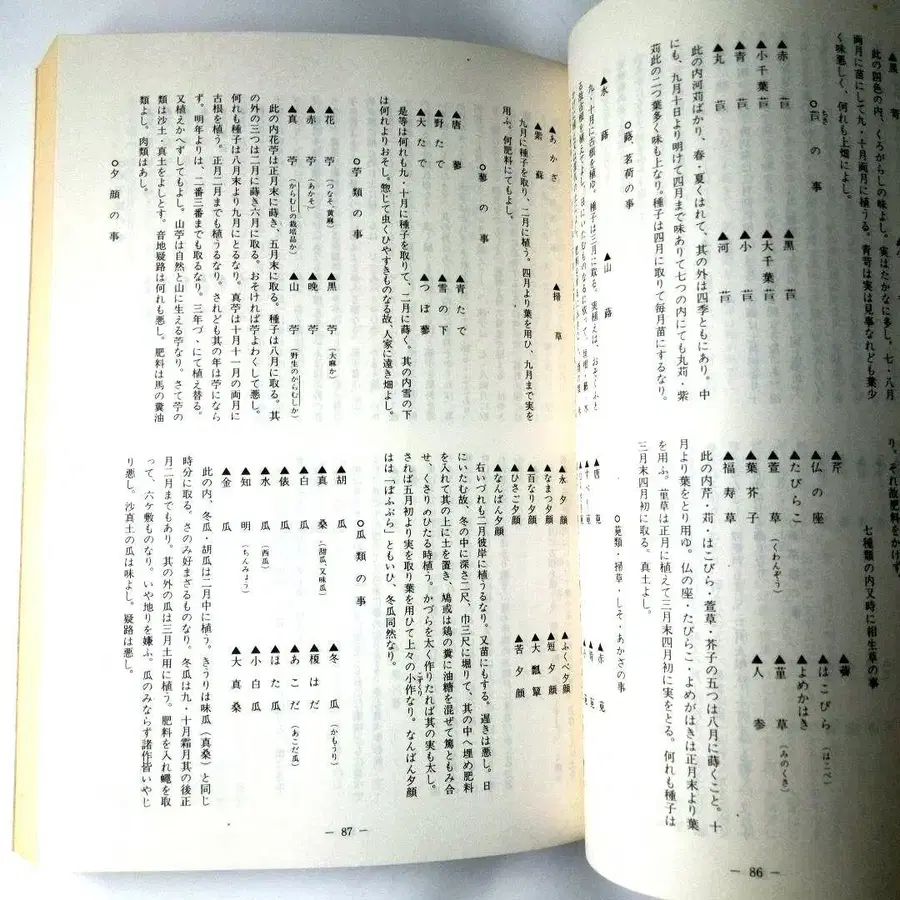 ▲赤 苣 ▲黒 苣
▲小千葉苣 ▲大千葉苣
▲青 苣 ▲小 苣
▲丸 苣 ▲河 苣
此の内河苅ばかり、春・夏くはれて、其の外は四季ともにあり。中
にも、九月十日より明けて四月まで味ありて七つの内にても丸苅・紫
苅此の二つ葉多く味も上なり。種子は四月に取りて毎月苗にするなり。
○蕗、茗荷の事
▲水 蕗 ▲山 蕗
り。それ故肥料をかけず。
七種類の内又時に相生草の事
▲芹 ▲薺
▲仏の座 ▲はこびら(はこべ)
▲たびらこ ▲よめかはき
▲萱 草(くわんぞう) ▲菫 草(みのくき)
▲葉芥子 ▲人 参
▲福寿草
此の内芹・苅・はこびら・萱草・芥子の五つは八月に蒔くこと。十
月より葉をとり用ゆ。仏の座・たびらこ・よめがはきは正月末より葉
を用ふ。菫草は正月に植えて三月末四月初に実をとる。何れも種子は
三月末四月初に取る。真土よし。
○莧類・掃草・しそ・あかざの事
― 86 ―
▲あかざ ▲掃 草
▲紫 蘇
九月に種子を取り、二月に植う。四月より葉を用ひ、九月まで実を
用ふ、何肥料にてもよし。
○蓼の事
▲唐 蓼 ▲青たで
▲野たで ▲雪の下
▲大たで ▲つぼ蓼
是等は何れも九・十月に種子を取りて、二月に蒔く。其の内雪の下
は何れよりおそし。惣じて虫くひやすきものなる故、人家に遠き畑よし。
○苧類の事
▲花 苧(つなそ、黄麻) ▲黒 苧(大麻か)
▲赤 苧(あかそ) ▲晩 苧
▲真 苧(からむしの栽培品か) ▲山 苧(野生のからむしか)
此の内花苧は正月末に蒔き、五月末に取る。種子は八月に取る。其
の外の三つは二月に蒔き六月に取る。おそければ苧よわくして悪し。
何れも種子は八月末より九月にとるなり。真苧は十月十一月の両月に
古根を植う。正月二月までも植うるなり。されども其の年は苧になら
ず。明年よりは、二番三番までも取るなり。三年づゝにて植え替る。
又植えかへずしてもよし。山苧は自然と山に生える苧なり。さて苧の
類は沙土・真土をよしとす。音地疑路は何れも悪し。肥料は馬の糞油
類よし。肉類はあし。
○夕顔の事
▲永夕顔 ▲ふくべ夕顔
▲なまつ夕顔 ▲短夕顔
▲百なり夕顔 ▲大瓢簞
▲ひさご夕顔 ▲苦夕顔
▲なんばん夕顔
右いづれも二月彼岸に植うるなり。又苗にもする。遅きは悪し。日
にいたむ故、冬の中に深さ二尺、巾三尺に堀りて、其の中へ埋め肥料
を入れて其の上に土を置き、鳩或は鶏の糞に油糟を混ぜて篤ともみ合
せ、くさりめひたる時植う。かづらを太く作りたれば其の実も太し。
されば五月初より実を取り葉を用ひて上々の小作なり。なんばん夕顔
はは「ぼふぶら」ともいひ、冬瓜同然なり。
○瓜類の事
▲胡 瓜 ▲冬 瓜(かもうり)
▲真 桑(甜瓜、又味瓜) ▲榎はだ
▲白 瓜 ▲あこだ(あこだ瓜)
▲俵 瓜 ▲ほた 瓜
▲水 瓜(西瓜) ▲小白瓜
▲知 明(ちんみょう) ▲大真桑
▲金 瓜
此の内、冬瓜・胡瓜は二月中に植う。きうりは味瓜(真桑)と同じ
時分に取る。さのみ好まざるものなり。冬瓜は九・十月霜月其の後正
月二月までもあり。其の外の瓜は三月土用に植う。肥料を入れ蠅を取
って、六ケ敷ものなり。いや地りを嫌ふ。瓜のみならず諸作皆いやじ
り悪し。沙真土の瓜は味よし。疑路は悪し。
― 87 ―